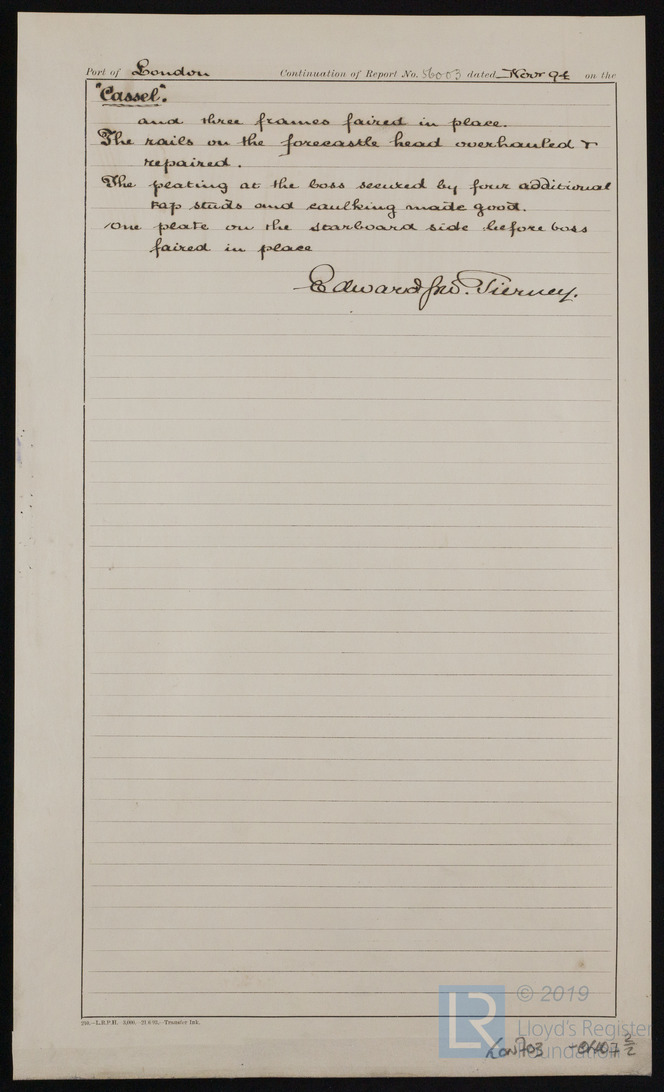 Port of London Continuation of Report No. 56003 dated Novr 94 on the
"Cassel".
and three frames faired in place.
The rails on the forecastle head overhauled &
repaired.
The plating at the boss secured by four additional
tap studs and caulking made good.
One plate on the starboard side before boss
faired in place
Edward Jno. Tierney.
L.R.P.H. Transfer Ink.
© 2019
LR
Lloyd's Register
Foundation
LON703